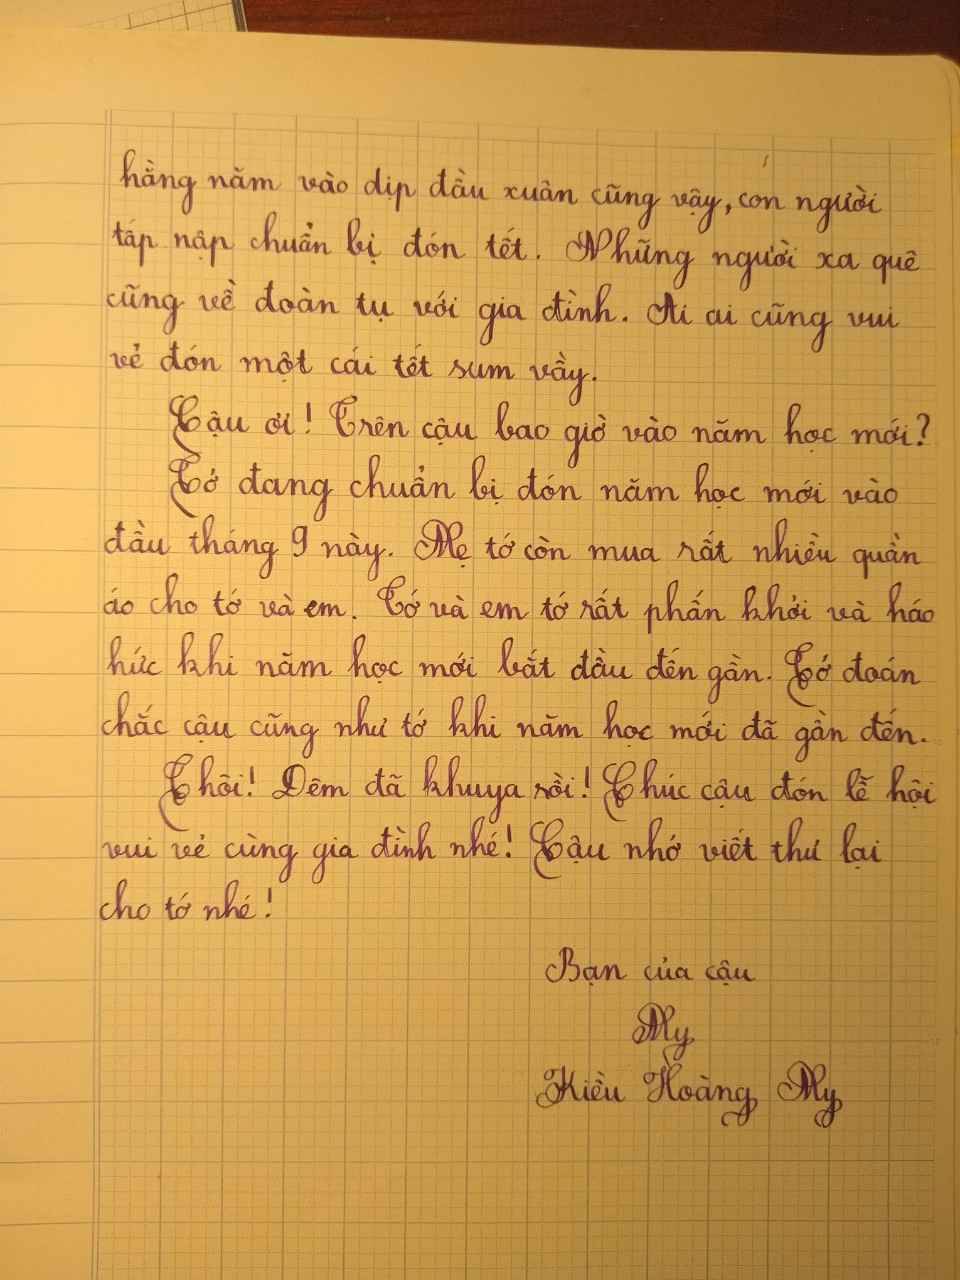 hằng năm vào dịp đầu xuân cũng vậy, con người
tấp nập chuẩn bị đón tết. Những người xa quê
cũng về đoàn tụ với gia đình. Ai ai cũng vui
vẻ đón một cái tết sum vầy.
Cậu ơi! Trên cậu bao giờ vào năm học mới?
Tớ đang chuẩn bị đón năm học mới vào
đầu tháng 9 này. Mẹ tớ còn mua rất nhiều quần
áo cho tớ và em. Tớ và em tớ rất phấn khởi và háo
hức khi năm học mới bắt đầu đến gần. Tớ đoán
chắc cậu cũng như tớ khi năm học mới đã gần đến.
Thôi! Đêm đã khuya rồi! Chúc cậu đón lễ hội
vui vẻ cùng gia đình nhé! Cậu nhớ viết thư lại
cho tớ nhé!
Bạn của cậu
My
Kiều Hoàng My